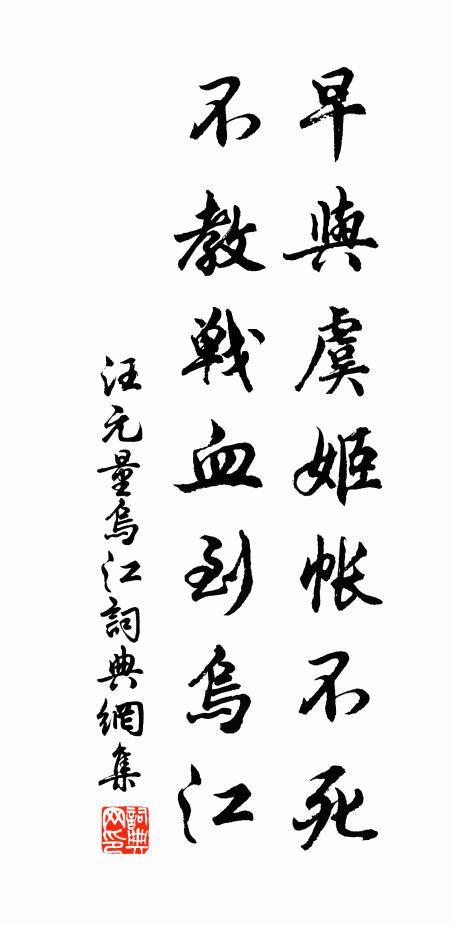 早與虞姬帳不死
不教戰血到烏江
汪元量烏江詞典網集
詞典
网印